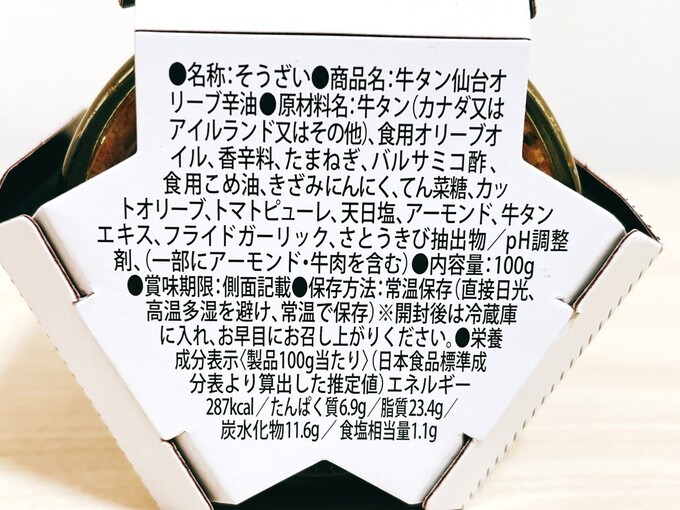 ●名称：そうざい●商品名：牛タン仙台オ
リーブ辛油●原材料名：牛タン（カナダ又は
アイルランド又はその他）、食用オリーブオ
イル、香辛料、たまねぎ、バルサミコ酢、
食用こめ油、きざみにんにく、てん菜糖、カッ
トオリーブ、トマトピューレ、天日塩、アーモンド、牛タン
エキス、フライドガーリック、さとうきび抽出物／pH調整
剤、（一部にアーモンド・牛肉を含む）●内容量：100g
●賞味期限：側面記載●保存方法：常温保存（直接日光、
高温多湿を避け、常温で保存）※開封後は冷蔵庫
に入れ、お早目にお召し上がりください。●栄養
成分表示〈製品100g当たり〉（日本食品標準成
分表より算出した推定値）エネルギー
287kcal／たんぱく質6.9g／脂質23.4g／
炭水化物11.6g／食塩相当量1.1g